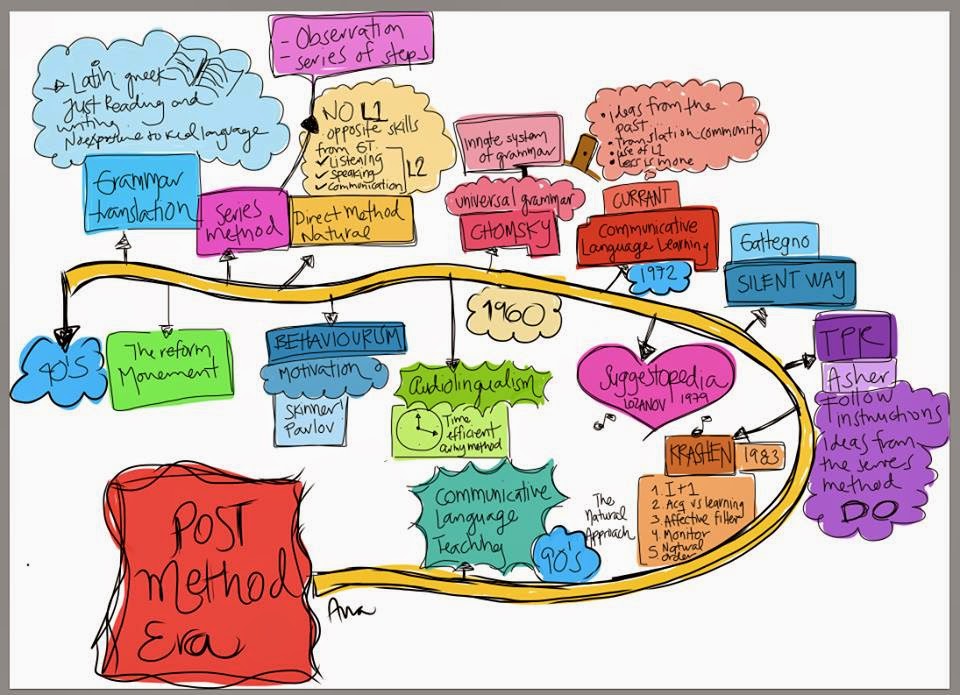 - Observation
- series of steps
Latin greek
Just Reading and
writing
No exposure to real language
Grammar
translation
Series
method
NO L1
opposite skills
from GT.
✓ Listening
✓ speaking
✓ communication
L2
Direct Method
Natural
innate system
of grammar
universal grammar
CHOMSKY
• ideas from the
past...
• translation community
• use of L1
• Less is more
CURRANT
Communicative
Language Learning
1972
Gattegno
SILENT WAY
40'S
The reform
Movement
BEHAVIOURISM
MOTIVATION
SKINNER
PAVLOV
1960
Audiolingualism
Time
efficient
army method
Suggestopedia
LOZANOV 1979
TPR
Asher
Follow
instructions
Ideas from
the series
method
DO
KRASHEN
1983
1. I+1
2. Acq vs learning
3. Affective filter
4. Monitor
5. Natural
order
The
Natural
Approach
Communicative
Language
Teaching
90'S
POST
Method
Era
Ana